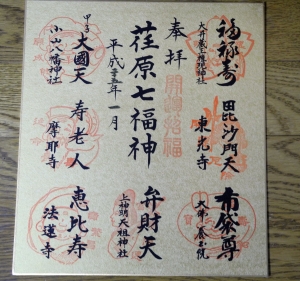 福禄寿
大井蔵王権現神社
毘沙門天
東光寺
布袋尊
大佛養玉院
奉拝
開運招福
荏原七福神
平成二十五年一月
弁財天
上神明天祖神社
甲子
大國天
小山八幡神社
寿老人
摩耶寺
恵比寿
法蓮寺